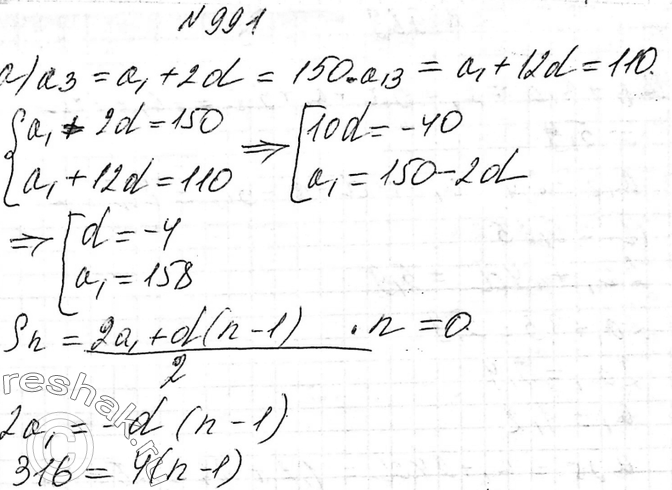 №991
а) a₃ = a₁ + 2d = 150. a₁₃ = a₁ + 12d = 110.
{ a₁ + 2d = 150
a₁ + 12d = 110 ⇒ [ 10d = -40
a₁ = 150 - 2d
⇒ [ d = -4
a₁ = 158
Sn = (2a₁ + d(n-1))/2 · n = 0
2a₁ = -d (n-1)
316 = 4(n-1)
reshak.ru